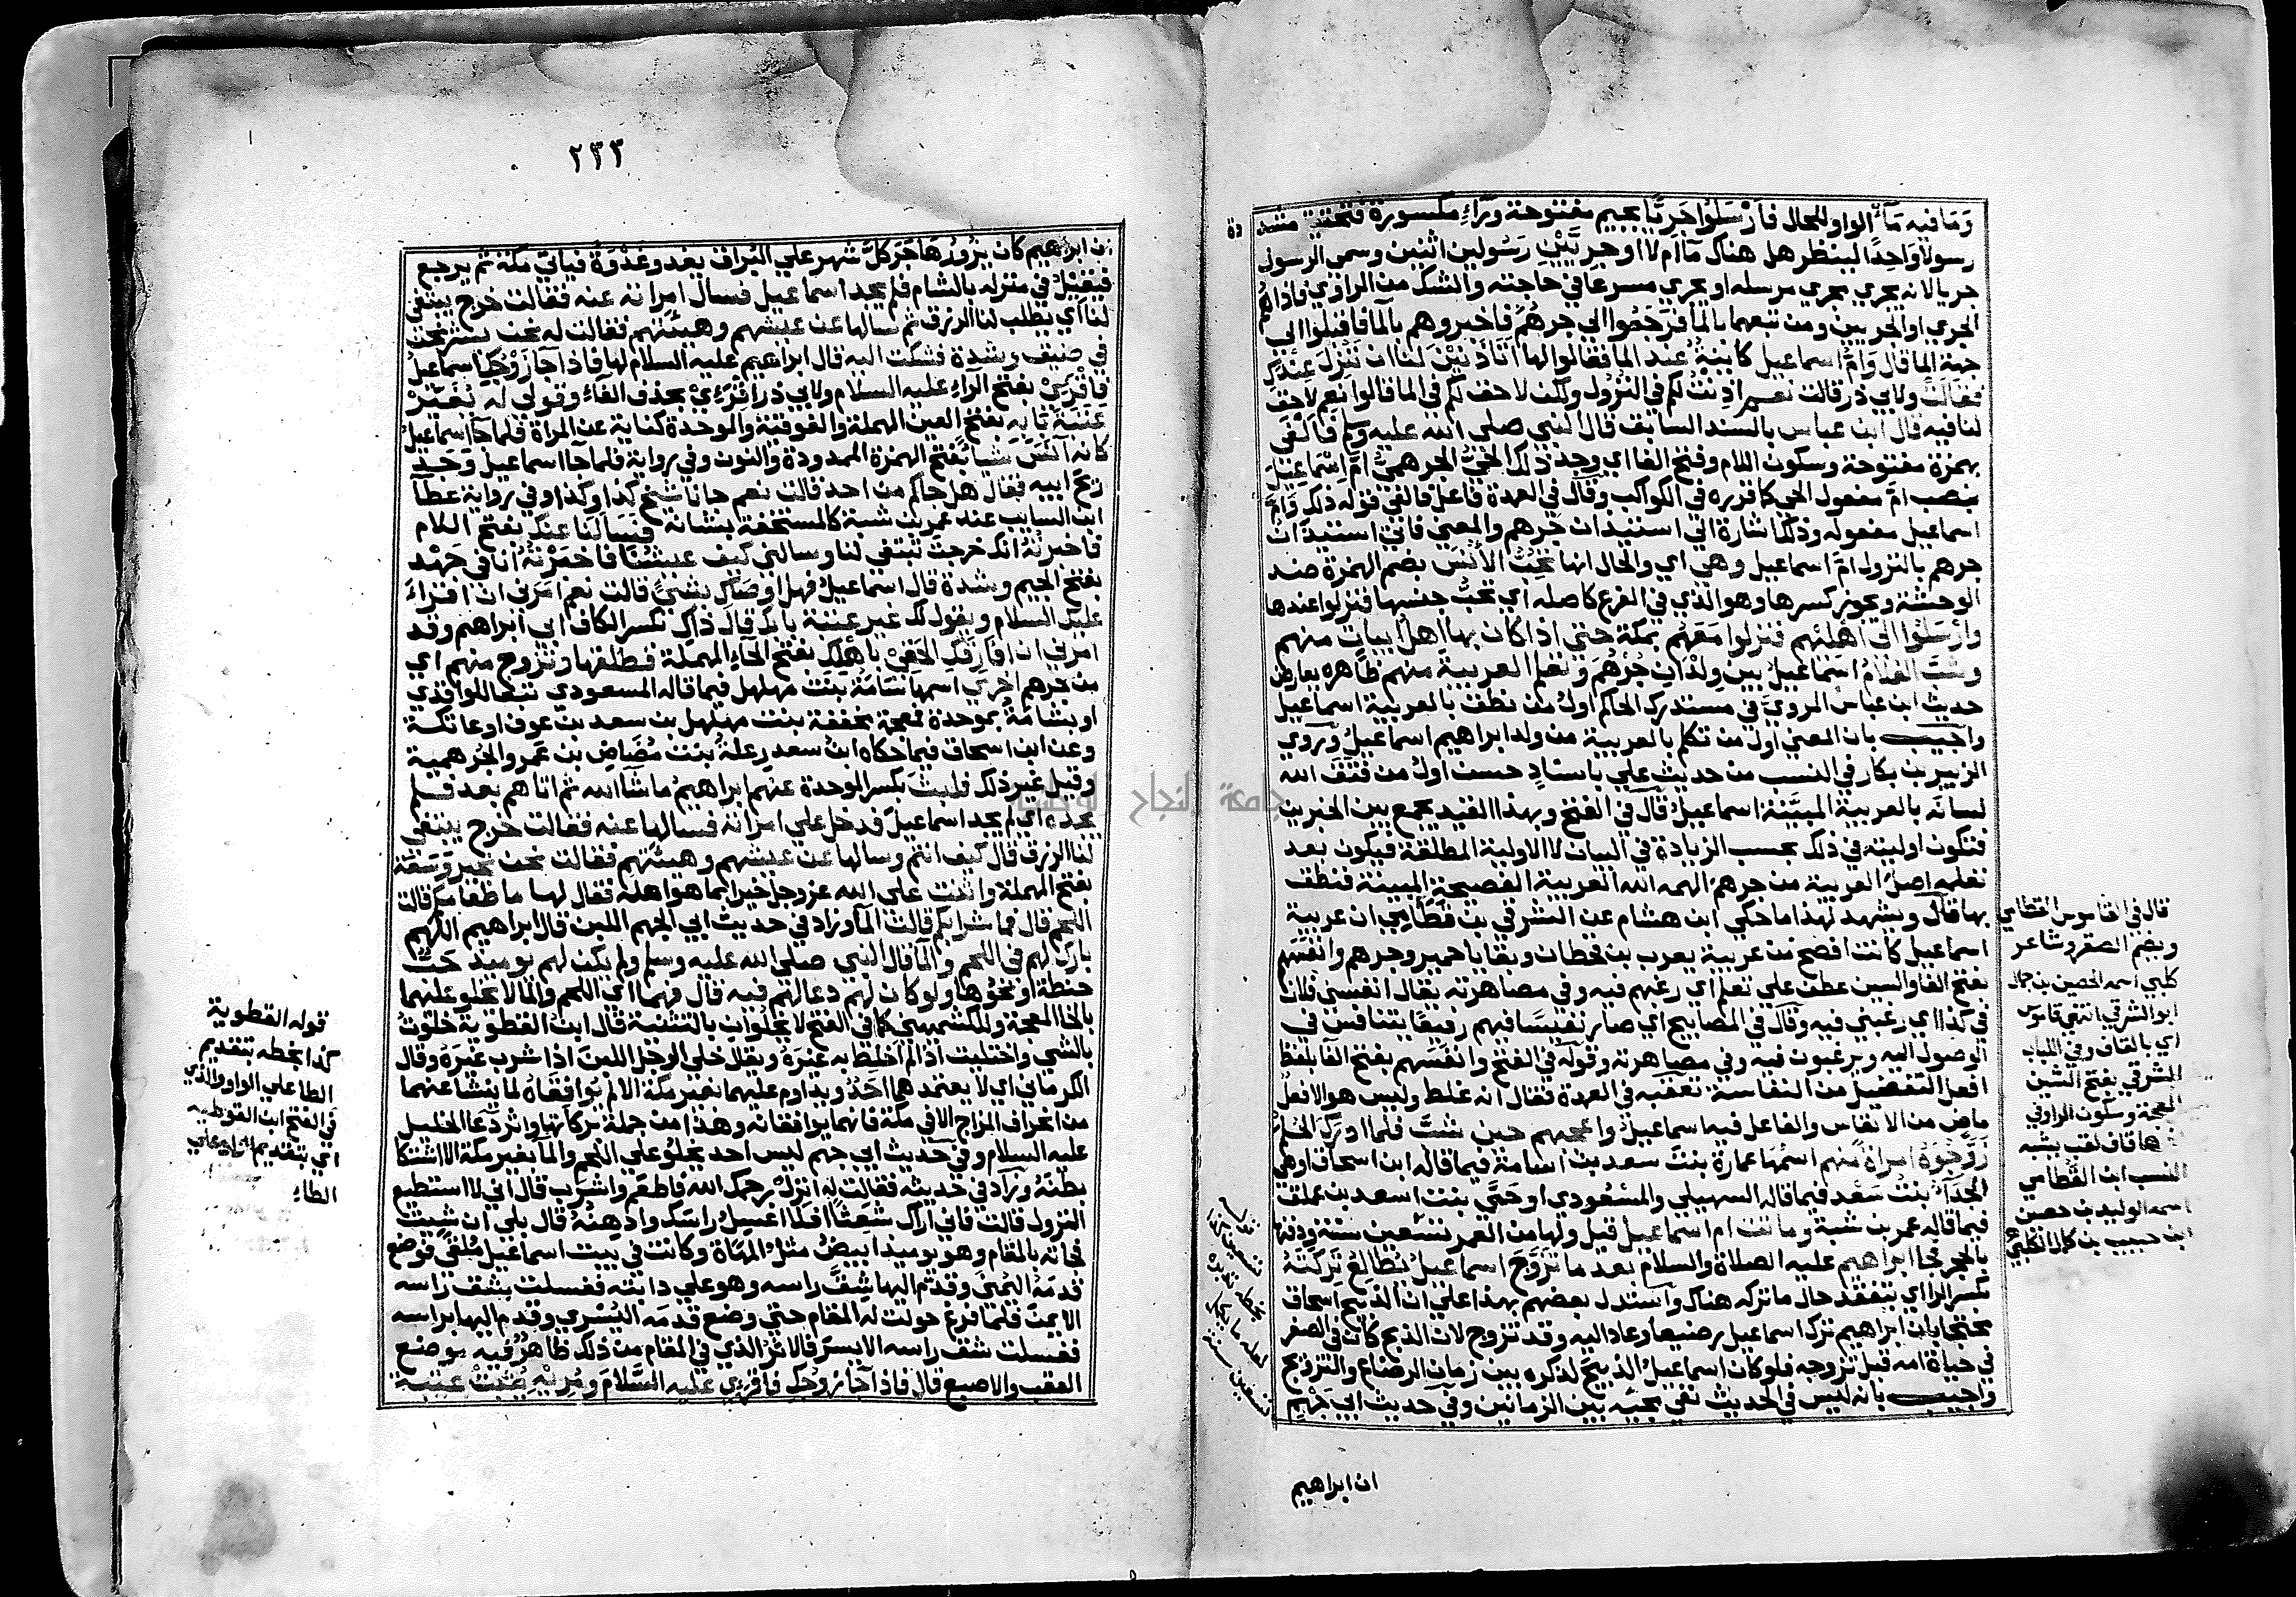 وَمَا فيه مَآءٌ الواو للحال فأرْسَلُوا جَرِيًّا بجيم مفتوحة ورَاءٍ مكسورة فتحتية مشددة
رسولا وَاحِدًا لينظر هل هناك مَآ ام لا او جرِيَّيْنِ رَسُولين اثنين وسمى الرسول
جريا لانه يجري مجري مرسله او يجري مسرعا في حاجته والشك من الراوي فاذا هُم
الجري او الجريين ومن تبعهما بالما فرَجَعُوا الي جرهُم فاخبروهم بالما فاقبلوا الي
جهة الما قال وَامُّ اسماعيل كاينةٌ عند الما فقالوا لها أتَأذَنِيْنَ لنا ان نَنْزِلَ عِنْدَكِ
فقالَتْ ولابي ذر قالت نعم اذِنْتُ لكم في النزول ولكن لا حق لكم في الما قالوا نعم لاحق
لنا فيه قال ابن عباس بالسند السابق قال النبي صلي الله عليه وسلم فَأَلْفَى
بهمزة مفتوحة وسكون اللام وفتح الفا اي وجد ذلك الحَيُّ الجرهميُّ امَّ اِسْمَاعيلَ
بنصب امّ مفعول الحي كا قرره في الكواكب وقال في العمدة فاعل فالفي قوله ذلك وَامَّ
اسماعيل مفعوله وذلك اشارة الي استيذان جُرهم والمعني فاتي استيذانُ
جرهم بالنزول امّ اسماعيل وهي اي والحال انها تُحِبُّ الأُنْسَ بضم الهمزة ضد
الوحشة ويجوز كسرها وهو الذي في الفرع كاصله اي تحبّ جنسها فنزلوا عندها
وأرسَلُوا الي أهْلهم فنزلوا مَعَهُم بمكة حتي اذا كان بها اهلُ ابياتٍ منهم
وشَبَّ الغلامُ اسماعيل بين ولدان جُرْهُمَ وتعلم العربية منهم ظاهره يعارض
حديث ابن عباس المروي في مستدرك الحاكم اولُ من نطق بالعربية اسماعيل
واجيب بان المعني اول من تكلم بالعربية من ولد ابراهيم اسماعيلُ وروي
الزبير بن بكار في النسب من حديث علي باسنادٍ حسن اولُ من فتق الله
لسانَه بالعربية المبيّنة اسماعيلُ قال في الفتح وبهذا القيد يجمع بين الخبرين
فتكون اوليته في ذلك بحسب الزيادة في البيان لا الاولية المطلقة فيكون بعد
تعلمه اصل العربية من جرهم الهمه الله العربية الفصيحة المبينة فنطق
بها قال ويشهد لهذا ما حكي ابن هشام عن الشرقي بن قَطَامي ان عربية
اسماعيل كانت افصح من عربية يعرب بن قحطان وبقايا حمير وجرهم وانفَسَهُم
بفتح الفا والسين عطف علي تعلم اي رغبهم فيه وفي مصاهرته يقال انفسني فلان
في كذا اي رغبني فيه وقال في المصابيح اي صار نفيسًا فيهم رفيعًا يتنافس في
الوصول اليه ويرغبون فيه وفي مصاهرته وقوله في الفتح وانفَسَهم بفتح الفا بلفظ
افعل التفضيل من النفاسة تعقبه في العمدة فقال انه غلط وليس هو الا فعل
ماض من الانفاس والفاعل فيه اسماعيلُ واعجبهم حين شبَّ فلما ادرك الحُلُم
زَوَّجُوهُ امراة منهم اسمُها عمارة بنت سعد بن اسامة فيما قاله ابن اسحاق او هي
الجَدَّاءُ بنتُ سَعْد فيما قاله السهيلي والمسعودي او حَيَّ بنت اسعد بن عملق
فيما قاله عمر بن شبة وماتت ام اسماعيل قيل ولها من العمر تسْعين سنة ودفنها
بالحجر فجا ابراهيم عليه الصلاة والسلام بعد ما تزَوَّجَ اسماعيلُ يُطالِعُ تَرِكَتَهُ
بكسر الرا اي يتفقد حال ما تركه هناك واستدل بعضهم بهذا علي ان الذبيح اسحاق
محتجا بان ابراهيم ترك اسماعيل رضيعا وعاد اليه وقد تزوج لان الذبح كان في الصغر
في حياة امه قبل تزوجه فلو كان اسماعيلُ الذبيح لذكره بين زمان الرضاع والتزويج
واجيب بانه ليس في الحديث نفي مجيّه بين الزمانين وفي حديث ابي جَهْمٍ
ان ابراهيم
قال في القاموس القطامي
ويضم الصقر وشاعر
كلبي اسمه الحصين بن جمال
ابو الشرقي انتهي قاموس
اي بالقاف وفي اللباب
الشرقي بفتح الشين
المعجمة وسكون الراء وفي
ها قاف لقب يشبه
النسب ابن القطامي
اسمه الوليد بن حصين
ابن حبيب بن كمال الكلبي
قوله
تسعين كذا
بخطه
لعله
تسعين سنة
٢٣٣
ان ابراهيم كان يزُورُ هَاجَرَ كلَّ شهر علي البُراق يغدو غَدْوَةً فياتي مكة ثم يرجع
فيقيْلُ في منزله بالشام فلم يجد اسماعيل فسال امراته عنه فقالت خرج يبتغي
لنا اي يطلب لنا الرزق ثم سالها عن عيشهم وهيئتهم فقالت له نحن بشرٍّ نحن
في ضيق وشدة فشكت اليه قال ابراهيم عليه السلام لها فاذا جَآ زَوْجُكِ اسماعيل
فاقْرَيْ بفتح الرآءِ عليه السلام ولابي ذر اِقْرَيْ بحذف الفاءِ وقولي له يُغَيّرْ
عتبَةَ بَابِه بفتح العين المهملة والفوقية والموحدة كناية عن المراة فلما جآ اسماعيلُ
كانه آنَسَ شيا بفتح الهمزة الممدودة والنون وفي رواية فلما جا اسماعيل وَجَدَ
ريحَ ابيه فقال هل جاكم من احد قالت نعم جانا شيخ كذا وكذا وفي رواية عطآ
ابن السايب عند عمر بن شبة كالمستخفة بشانه فَسَالَنا عنك بفتح اللام
فاخبرتُهُ انك خرجت تبتغي لنا وسالني كيف عيشُنا فاخبرْتُهُ أنا في جَهْد
بفتح الجيم وشدة قال اسماعيلُ فهل اوصاكِ بشيءٍ قالت نعم امَرني ان اقرأ
عليك السلام ويقول لك غير عتبة بابك قال ذاكِ بكسر الكاف ابي ابراهيم وقد
امرني ان افَارِقَكِ الحَقِيْ باهْلك بفتح الحاءِ المهملة فطلقها وتزوج منهم اي
من جرهم اخرَي اسمها سَامَة بنت مهلهل فيما قاله المسعودي تبعا للواقدي
او بشامَةُ بموحدة فمعجمة مخففة بنت مهلهل بن سعد بن عوف او عاتكة
وعن ابن اسحاق فيما حكاه ابن سعد رِعلةُ بنت مُضَاضِ بن عَمرو الجُرهمية
وقيل غير ذلك فلبث بكسر الموحدة عنهم ابراهيمُ ما شآ الله ثم اتاهم بعد فلم
يجده اي لم يجد اسماعيل فدخل علي امراته فسالها عنه فقالت خرج يبتغي
لنا الرزق قال كيف انتم وسالها عن عيشهم وهيئتهم فقالت نحن بخير وَسَعَة
بفتح المهملة واثنت علي الله عز وجل خيرا بما هو اهله فقال لها ما طعامكم قالت
اللحمُ قال فما شرابكم قالت المآ وزاد في حديث ابي الجهم اللبن قال ابراهيم اللهم
بارك لهم في اللحم والما قال النبي صلي الله عليه وسلم ولم يكن لهم يوميذ حَبٌّ
حنطة او نحوها ولو كان لهم دعا لهم فيه قال فهما اي اللحم والما لا يخلو عليهما
بالخا المعجمة وللكشميهني كا في الفتح لا يخلُوَانِ بالتثنية قال ابن القطوية خلوتُ
بالشي واختليت اذا لم اخلط به غيرَهُ ويقال خلي الرجل اللبنَ اذا شرب غيرَهُ وقال
الكرماني اي لا يعتمدهما احَدٌ ويداوم عليهما بغير مكة الا لم يُوافقاهُ لما ينشا عنهما
من انحراف المزاج الا في مكة فانهما يوافقانه وهذا من جملة بركاتها واثر دعا الخليل
عليه السلام وفي حديث ابي جهم ليس احد يخلُو علي اللحم والمآ بغير مكة الا اشتكا
بطنَهُ وزاد في حديثه فقالت له انزلْ رحمك الله فاطعم واشرب قال اني لا استطيع
النزول قالت فاني اراك شعثًا افلا اغسِلُ راسَك وادهنُهُ قال بلي ان شيت
فجآته بالمقام وهو يوميذ ابيضُ مثلُ المهَاة وكانت في بيت اسماعيل ملقى فوضع
قدمَهُ اليُمنَي وقدّم اليها شِقَّ راسه وهو علي دابته فغسلت شِق راسه
الايمنَ فلما فرغ حولت له المقام حتي وضع قدمَه اليُسْرَي وقدم اليها براسه
فغسلت شق راسه الايسرَ فالاثرُ الذي في المقام من ذلك ظاهرٌ فيه موضع
العقب والاصبع قال فاذا جآ زوجك فاقرَيْ عليه السَّلامَ ومُريْهِ يُثبتُ عتبة
قوله القطوية
كذا بخطه بتقديم
الطا علي الواو والذي
في الفتح ابن القوطيه
اي بتقديم الواو علي
الطاءِ
جامعة النجاح الوطنية